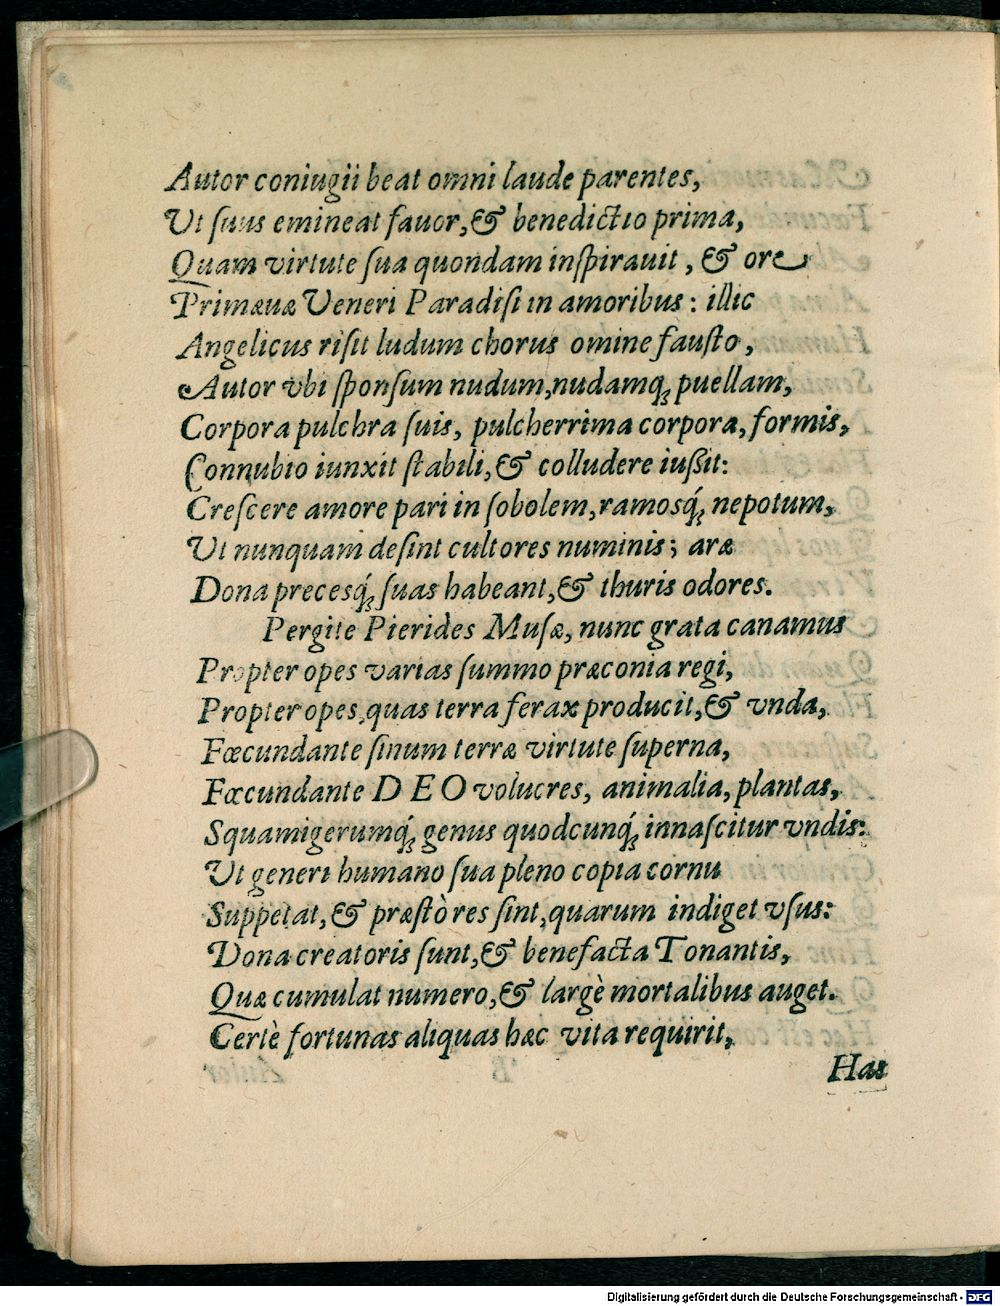 Autor coniugii beat omni laude parentes,
Ut suus emineat favor, & benedictio prima,
Quam virtute sua quondam inspirauit, & ore
Primæuæ Veneri Paradisi in amoribus: illic
Angelicus risit ludum chorus omine fausto,
Autor vbi sponsum nudum, nudamq́; puellam,
Corpora pulchra suis, pulcherrima corpora, formis,
Connubio iunxit stabili, & colludere iussit:
Crescere amore pari in sobolem, ramosq́; nepotum,
Ut nunquam desint cultores numinis; aræ
Dona precesq́; suas habeant, & thuris odores.
Pergite Pierides Musæ, nunc grata canamus
Propter opes varias summo præconia regi,
Propter opes, quas terra ferax producit, & vnda,
Fœcundante sinum terræ virtute superna,
Fœcundante DEO volucres, animalia, plantas,
Squamigerumq́; genus quodcunq́; innascitur vndis:
Ut generi humano sua pleno copia cornu
Suppetat, & præstò res sint, quarum indiget vsus:
Dona creatoris sunt, & benefacta Tonantis,
Quæ cumulat numero, & largè mortalibus auget.
Certè fortunas aliquas hæc vita requirit,
Has
Digitalisierung gefördert durch die Deutsche Forschungsgemeinschaft - DFG